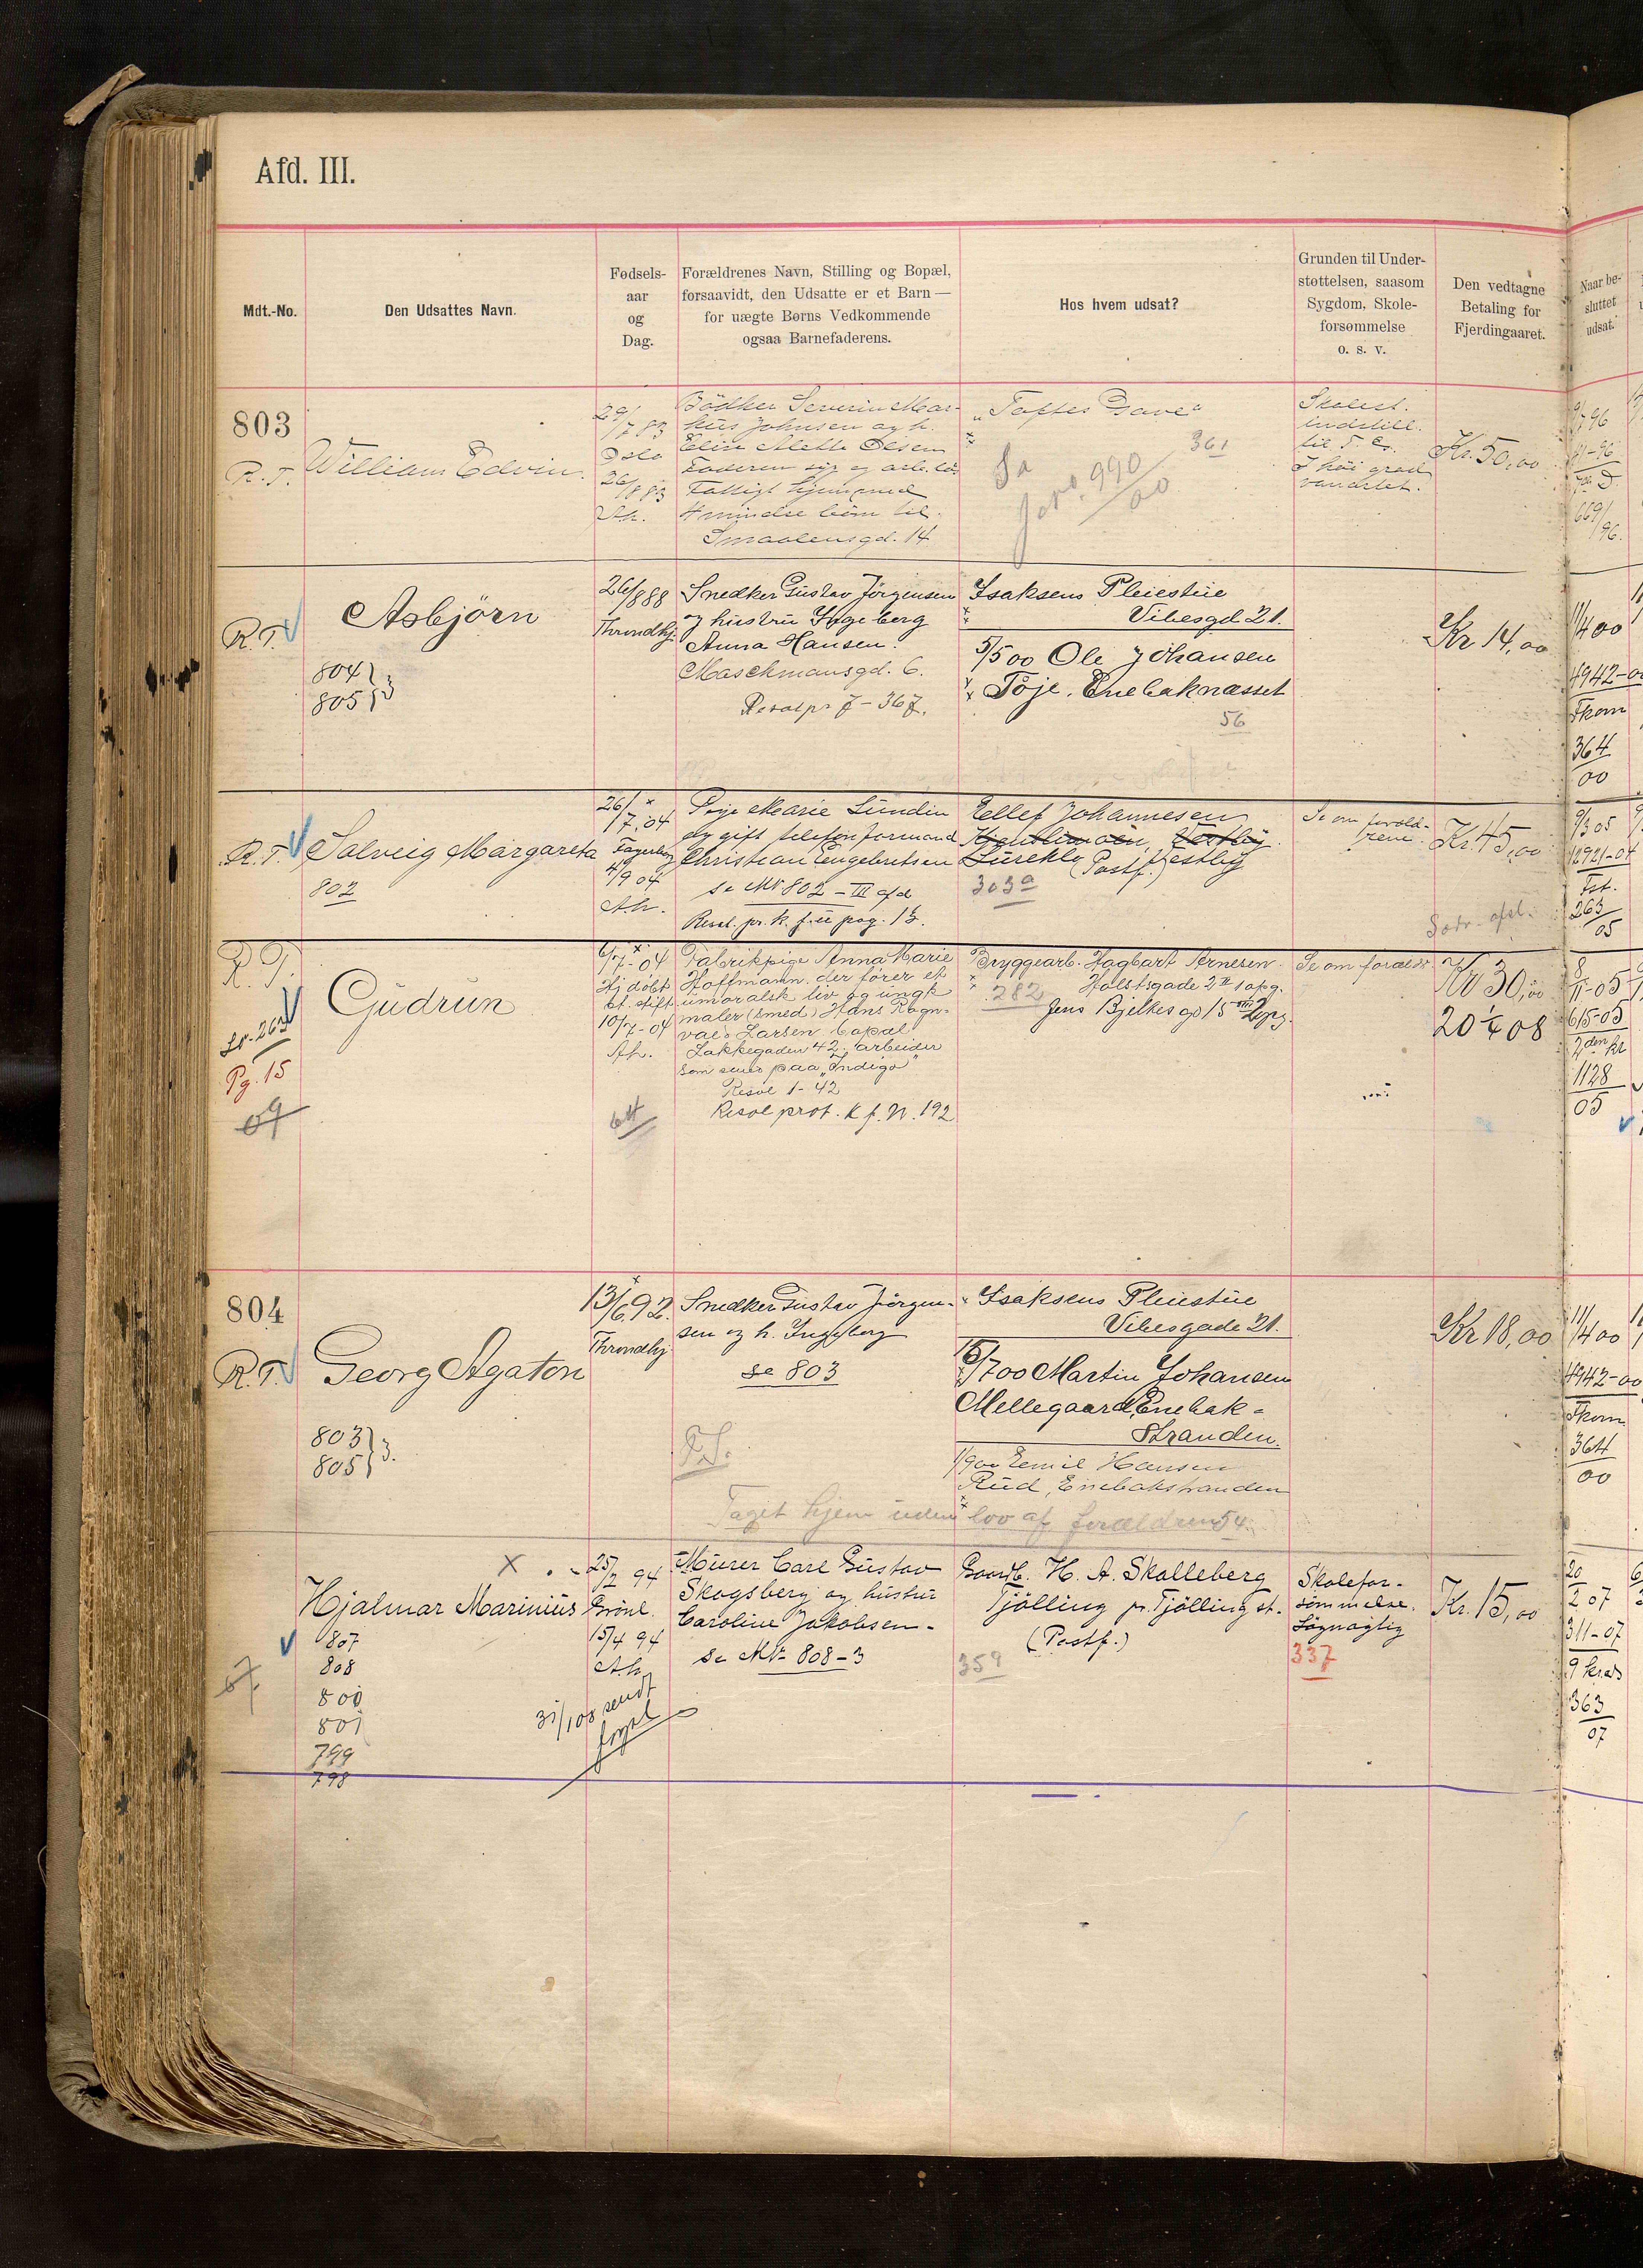 Afd. III.
Mdt.-No.
Den Udsattes Navn.
Fødsels-
aar
og
Dag.
Forældrenes Navn, Stilling og Bopæl,
forsaavidt, den Udsatte er et Barn —
for uægte Børns Vedkommende
ogsaa Barnefaderens.
Hos hvem udsat?
Grunden til Under-
støttelsen, saasom
Sygdom, Skole-
forsømmelse
o. s. v.
Den vedtagne
Betaling for
Fjerdingaaret.
Naar be-
sluttet
udsat.
803
R. T.
William Edvin.
29/7 83
Oslo
26/8 83
A.h.
Bödker Severin Mar-
kus Johnsen og h.
Elise Alette Olsen
Faderen syg og arb.lös
Fattigt hjem med
4 mindre börn til.
Smaalensgd. 14.
"Toftes Gave"
361
Jorn. 990/00
Skolest.
indstill.
til T. G.
I höi grad
vanartet.
Kr. 50,00
669/96.
R.T.
Asbjörn
804
805 } 3
26/8 88
Throndhj.
Snedker Gustav Jörgensen
og hustru Ingeberg
Anna Hansen.
Maschmansgd. 6.
Resolpr 7 - 367.
Isaksens Pleiestue
Vibesgd 21.
5/5 00 Ole Johansen
Töje, Enebaknesset
56
Kr 14,00
11/4 00
4942-00
Tkom
364
00
R.T.
Solveig Margareta
802
26/7.04
Fagerborg
4/9 04
A.h.
Pige Marie Lundin
og gift telefonformand
Christian Engebretsen
se Mt 802 - III afd
Resol. pr. k. f. u pag. 13.
Tellef Johannesen
Lurekle (Postf.) Vestby
303a
Se om foræld-
rene.
Kr. 45,00
9/3 05
12921-04
Fst.
263
05
R. T.
Gudrun
Pg. 15
09
6/7-04
Hj döbt
kt. stift
10/7-04
A.h.
64
Fabrikpige Anna Marie
Hoffmann. der förer et
umoralsk liv og ungk
maler (smed) Hans Ragn-
vald Larsen bopæl
Lakkegaden 42. arbeider
som smed paa "Indigo"
Resol 1 - 42
Resol prot. K f. N. 192
Bryggearb. Hagbart Arnesen.
Holstsgade 2 II opg.
282
Jens Bjelkes gd 15 III 2opg.
Se om foræld.
Kr 30,00
20 4/4 08
8/11-05
615-05
2den kr
1128
05
804
R.T.
Georg Agaton
803
805 } 3.
13/6 92.
Throndhj
Snedker Gustav Jörgen-
sen og h. Ingeberg
se 803
Isaksens Pleiestue
Vibesgade 21.
16/7 00 Martin Johansen
Mellegaard, Enebak-
Stranden.
1/9 00 Emil Hansen
Rud, Enebakstranden
Taget hjem uden lov af forældrene
54.
Kr 18,00
11/4 00
4942-00
Tkom
364
00
Hjalmar Marinius
807
808
800
801
799
798
25/2 94
Grönl.
15/4 94
A.h.
31/1 08 sendt
Murer Carl Gustav
Skogsberg og hustru
Caroline Jakobsen-
se Mt 808-3
Gaardb. H. A. Skalleberg
Tjölling pr. Tjölling st.
(Postf.)
359
Skolefor-
sömmelse.
Lögnagtig
337
Kr. 15,00
20/2 07
311-07
9 krds
363
07